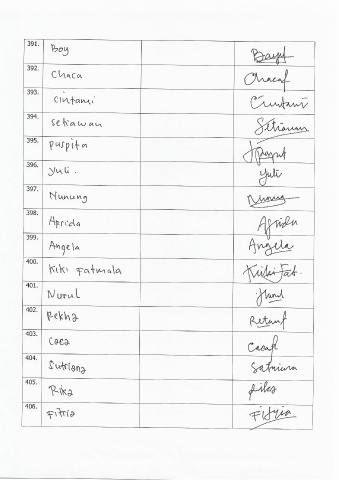 391. Boy Bayf
392. Chaca Chacaf
393. Cintami Cintami
394. Setiawan Setiawan
395. Puspita
396. Yuli. Yuli
397. Nunung Nunung
398. Aprida Afrida
399. Angela Angela
400. Kiki Fatmala Kiki Fat.
401. Nurul
402. Rekha
403. Caca Cacaf
404. Sutriana Satriana
405. Rika Rika
406. Fitria Fitria